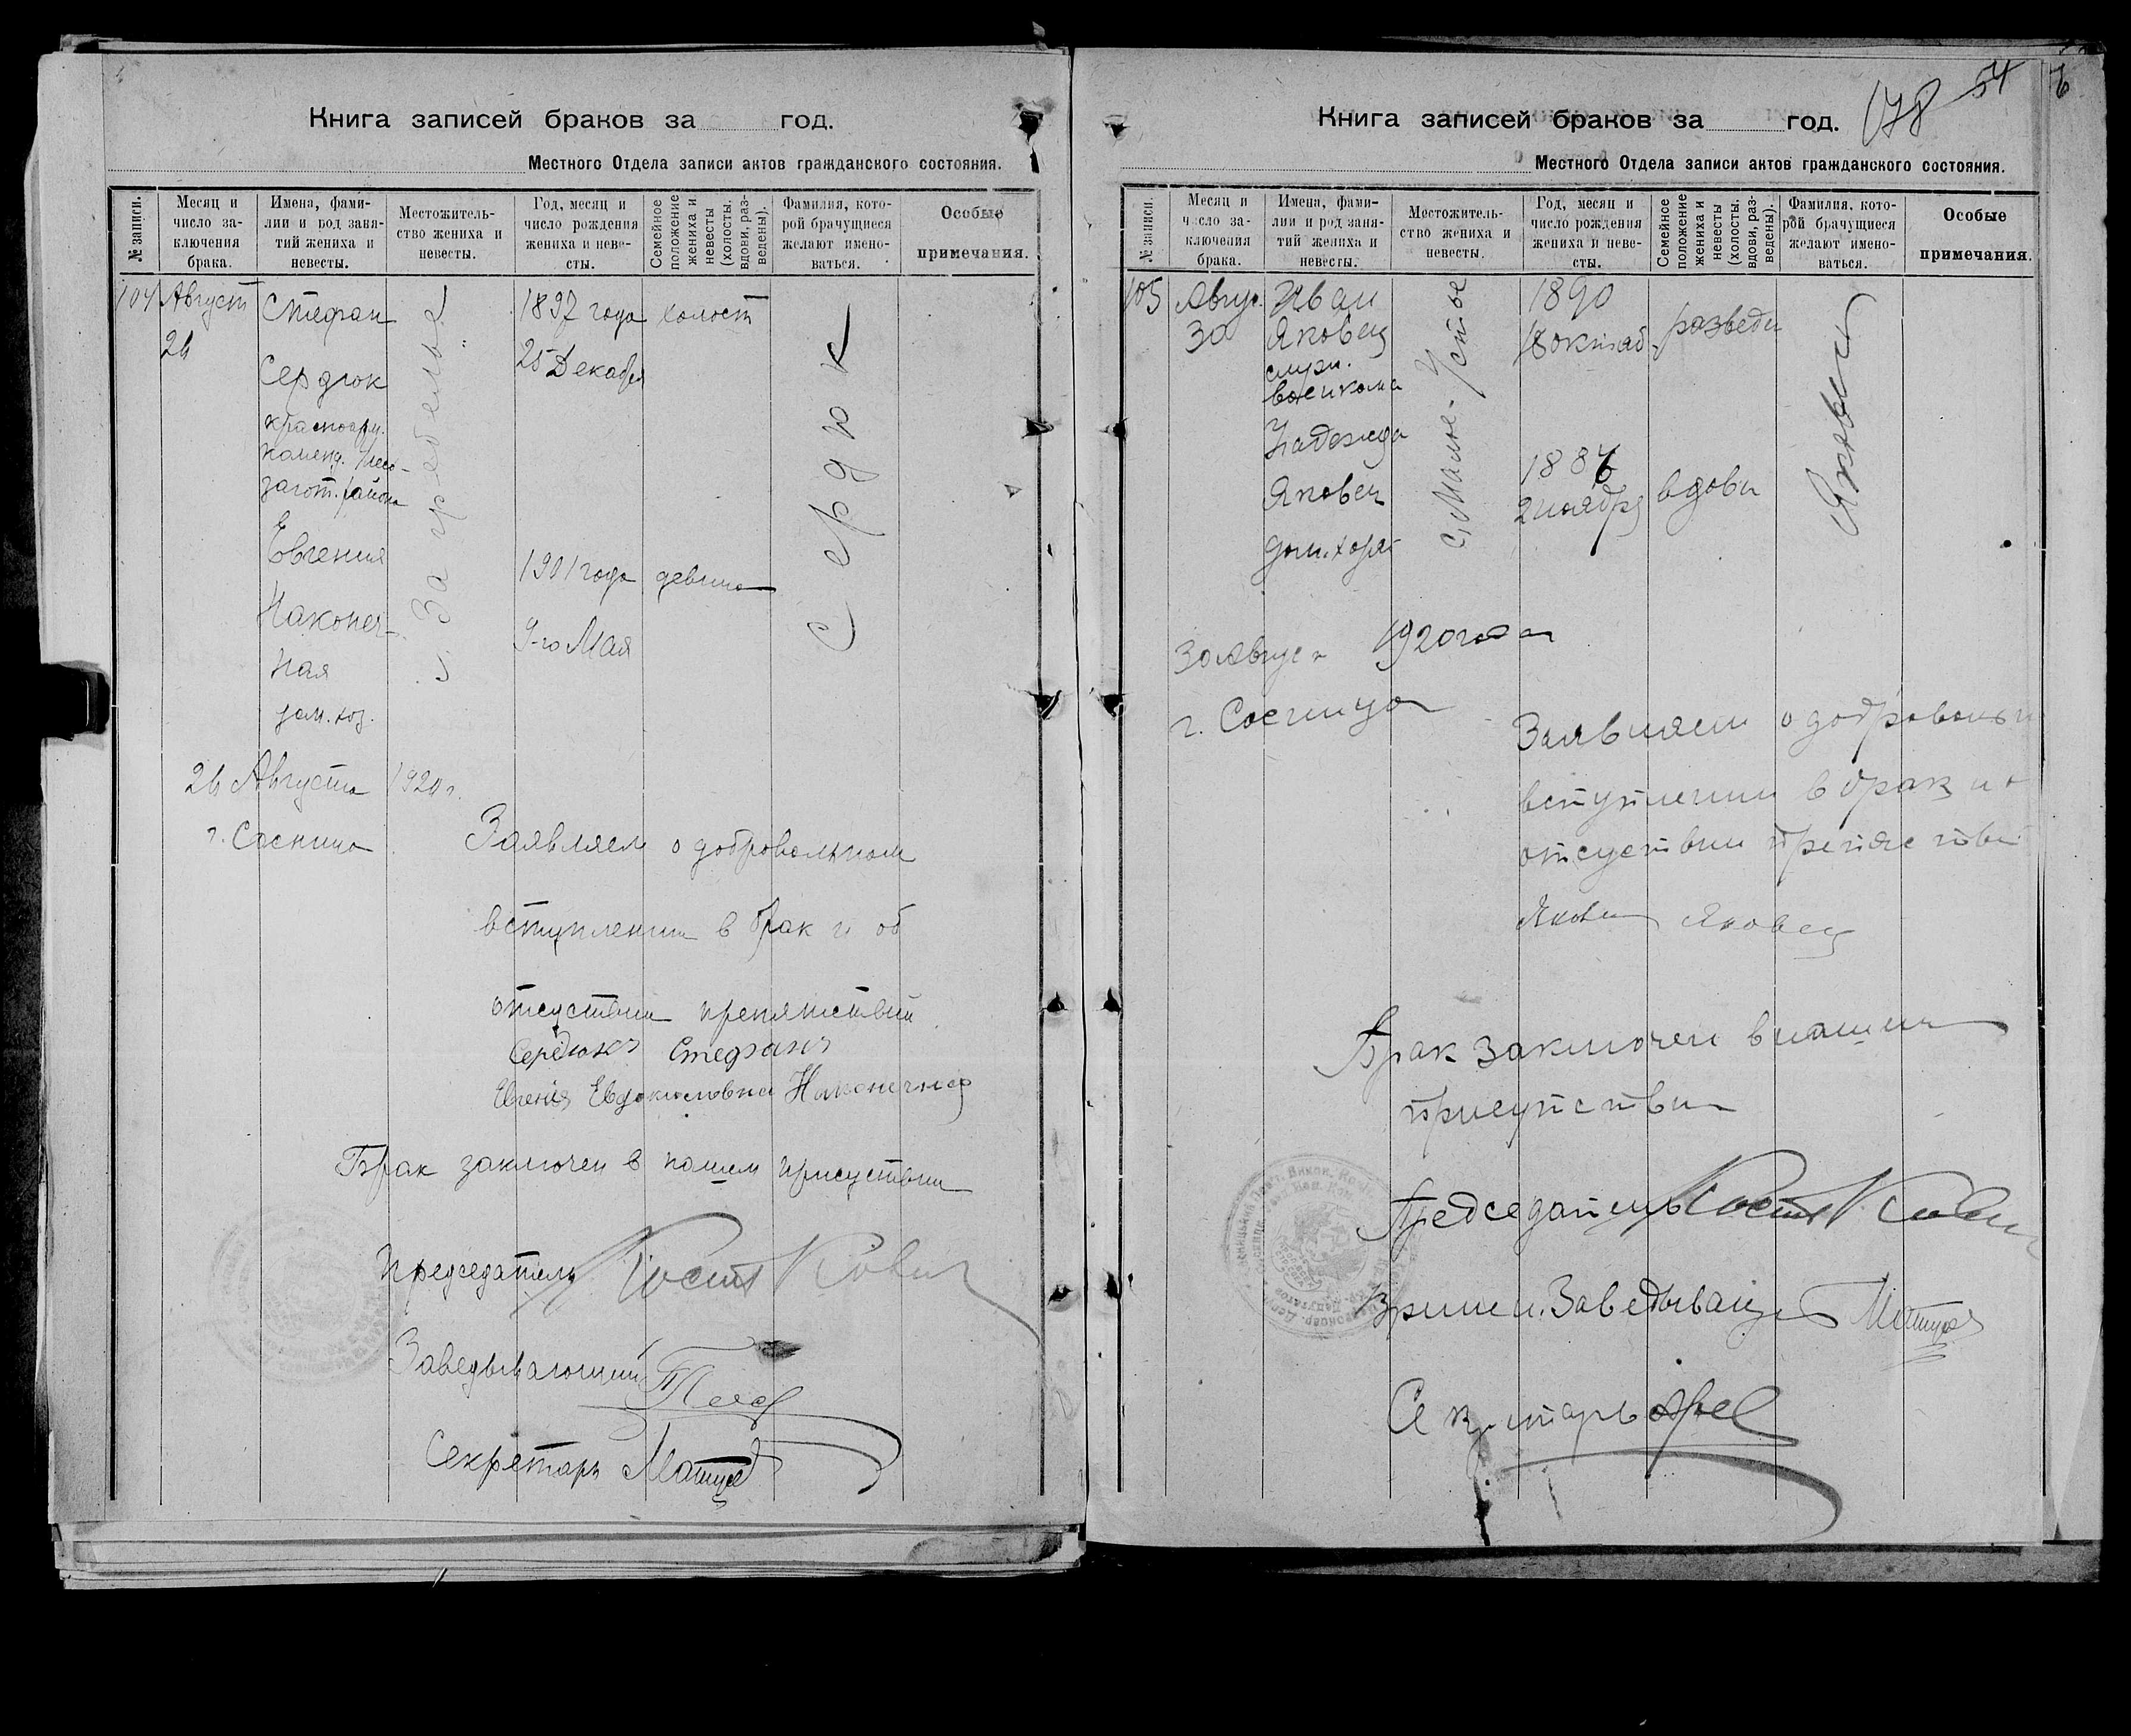 Книга записей браков за год.
Местного Отдела записи актов гражданского состояния.
№ записи.
Месяц и число заключения брака.
Имена, фами-
лии и род заня-
тий жениха и
невесты.
Местожитель-
ство жениха и
невесты.
Год, месяц и
число рождения
жениха и неве-
сты.
Семейное
положение
жениха и
невесты
(холосты,
вдови, раз-
ведены).
Фамилия, кото-
рой брачущиеся
желают имено-
ваться.
Особые
примечания.
104
Август
26
Стефан
Сердюк
красноарм.
загот. района
Евгения
Наконеч-
ная
дом. хоз.
1897 года
25 Декабря
холост
1901 года
9-го Мая
девица
Сердюк
26 Августа 1920 г.
г. Сосница
Заявляем о добровольном
вступлении в брак и об
отсуствии препятствий
Сердюкъ Стефанъ
Евгенія Евдокимовна Наконечная
Брак заключен в нашем присуствии
Председатель
Заведывающий
Секретарь
Книга записей браков за год.
178 54
Местного Отдела записи актов гражданского состояния.
№ записи.
Месяц и
число за-
ключения
брака.
Имена, фами-
лии и род заня-
тий жениха и
невесты.
Местожитель-
ство жениха и
невесты.
Год, месяц и
число рождения
жениха и неве-
сты.
Семейное
положение
жениха и
невесты
(холосты,
вдови, раз-
ведены).
Фамилия, кото-
рой брачущиеся
желают имено-
ваться.
Особые
примечания.
105
Авгус.
30
Иван
Яковец
служ.
военкома
Надежда
Яковец
дом. хозяй
с. Малое-Устье
1890
18 октяб.
разведен
2 ноября
вдова
Яковец
30 Август 1920 года
г. Сосница
Заявляем о доброволь
вступлении в брак и о
отсуствии препятстви
Яковец Яковец
Брак заключен в нашем
присутствии
Председатель
Времен. Заведывающ
Секретарь